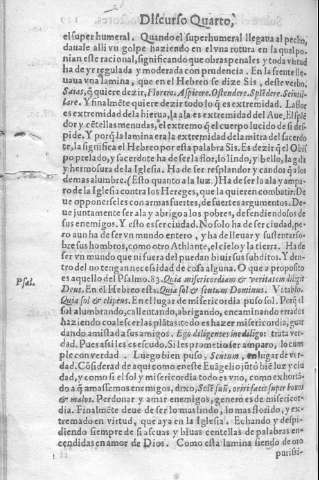 Discurso Quarto,
el superhumeral. Quando el superhumeral llegaua al pecho,
dauale alli vn golpe haziendo en el vna rotura en la qual po-
nian este racional, significando que obras penales y toda virtud
ha de yr regulada y moderada con prudencia. En la frente lle-
uaua vna lamina, que en el Hebreo se dize Sis, deste verbo.
quiere dezir, Florere. Aspicere. Ostendere. Splédere. Scintil-
lare. Y finalméte quiere dezir todo lo q̃ es extremidad. La flor
es extremidad de la hierua, la ala es extremidad del Aue, El splé
dor y cétellas menudas, el extremo q̃ el cuerpo lucido de si des
pide. Y porq̃ la lamina era la extremidad de la mitra del sacerdo
te, la significa el Hebreo por esta palabra Sis. Es dezir q̃ el Obis
po prelado, y sacerdote ha de ser la flor, lo lindo, y bello, la gala
y hermosura de la Iglesia. Ha de ser resplandor y candor q̃ a los
demas alumbre. (Esto quanto a la luz.) Ha de ser la ala y ampa-
ro de la Iglesia contra los Hereges, que la quieren combatir. De
ue opponerseles con armas fuertes, de fuertes argumentos. De-
ue juntamente ser ala y abrigo a los pobres, defendiendolos de
sus enemigos. Y esto es ser ciudad. No solo ha de ser ciudad, pe-
ro aun ha de ser vn mundo entero, y ha de lleuar y sustentar so-
bre sus hombros, como otro Athlante, el cielo y la tierra. Ha de
ser vn mundo que ni fuera del puedan biuir sus subditos, Y den
tro del no tengan necessidad de cosa alguna. O que a proposito
es aquello del Psalmo. 83. Quia misericordiam & veritatem diligit
Psal.
Deus. En el Hebreo esta: Quia sol & scutum Dominus. Vatablo.
Quia sol & clipeus. En el lugar de misericordia puso sol. Porq̃ el
sol alumbrando, calentando, abrigando, encaminando errados
haziendo coalescer las plátas todo es hazer misericordia, guar
dando amistad a sus amigos. Ego diligentes me diligo: trata ver-
dad. Pues assi les es escudo. Si les prometio ser amparo, lo cum
ple con verdad. Luego bien puso. Scutum, en lugar de ver-
dad. Cósiderad de aqui como en este Euágelio jútò hiè luz y ciu
dad, y como si el sol y misericordia todo es vno, como exhortá
do a q̃ amassemos enemigos, dixo, Solé suũ, oriri facit super bonos
& malos. Perdonar y amar enemigos, genero es de misericor-
dia. Finalméte deue de ser lo mas lindo, lo mas florido, y ex-
tremado en virtud, que aya en la Iglesia. Echando y despi-
diendo siempre de si ascuas y biuas centellas de palabras en-
cendidas en amor de Dios. Como esta lamina siendo de oro
purissi-